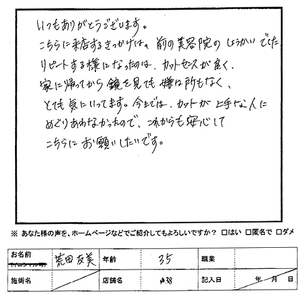 いつもありがとうございます。
こちらに来店するきっかけは、前の美容院のしょうかいでした。
リピートする様になったのは、カットセンスが良く、
家に帰ってから鏡を見ても嫌な所もなく、
とても気にいってます。今までは、カットが上手な人に
めぐりあわなかったので、これからも安心して
こちらにお願いしたいです。
※ あなた様の声を、ホームページなどでご紹介してもよろしいですか? □はい □匿名で □ダメ
お名前 荒田 友美 年齢 35 職業
施術名 店舗名 記入日 年 月 日